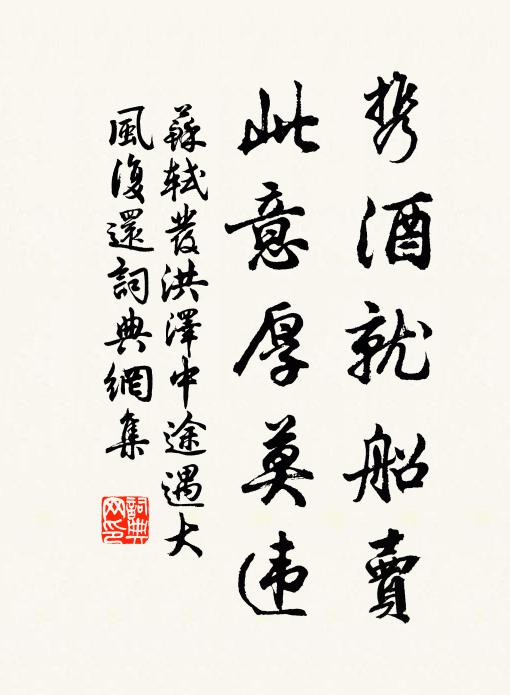 携酒就船賣
此意厚莫违
蘇軾發洪澤中途遇大
風復還詞典網集
詞典
网印